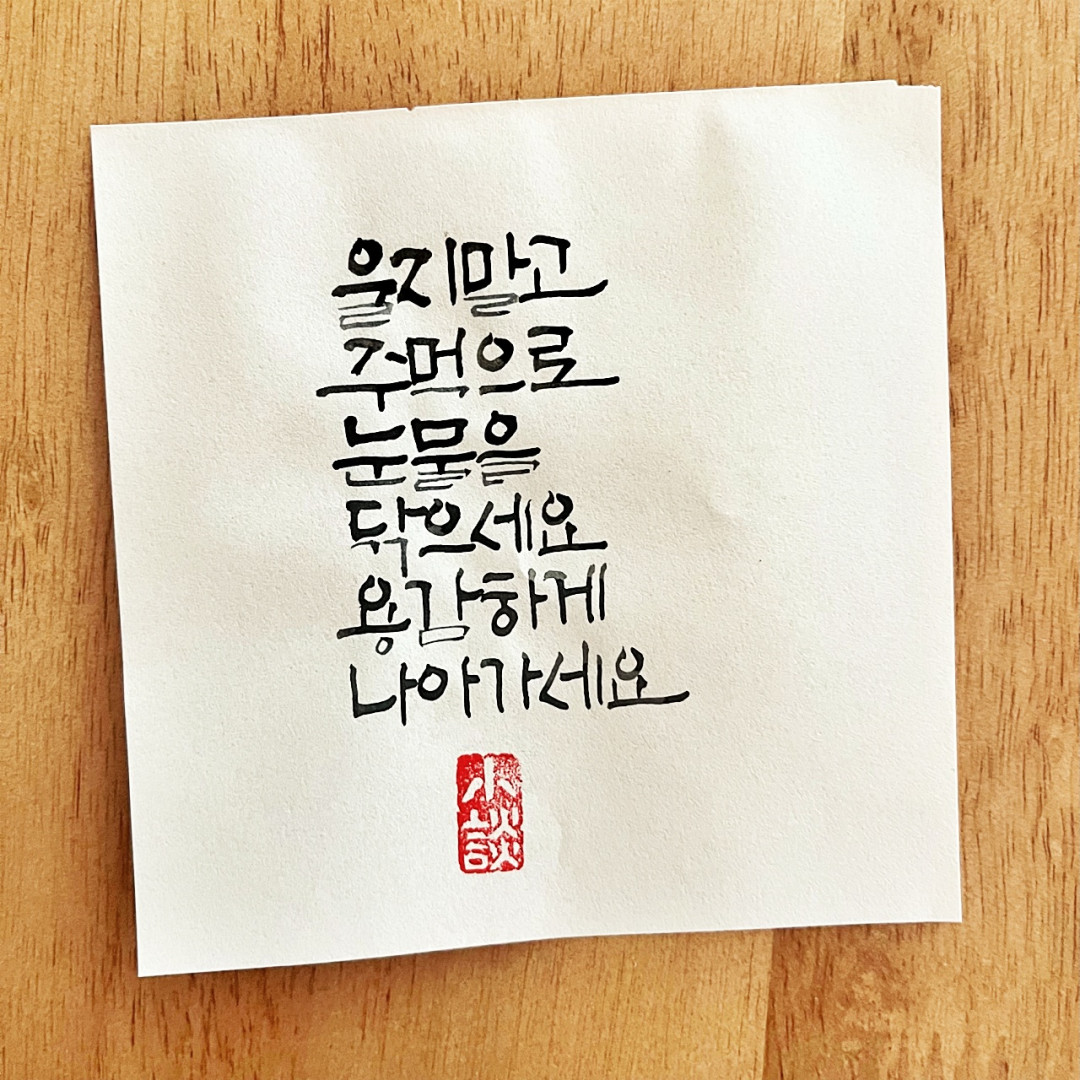 울지말고
주먹으로
눈물을
닦으세요
용감하게
나아가세요
小談